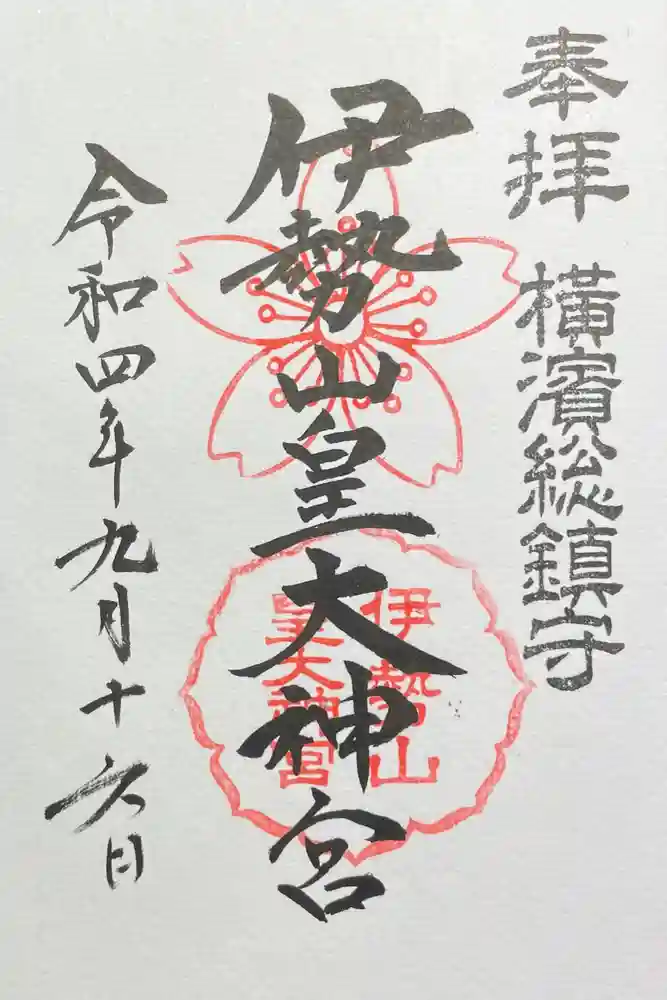 奉拝 横濱総鎮守
伊勢山皇大神宮
伊勢山
皇大神宮
令和四年九月十六日